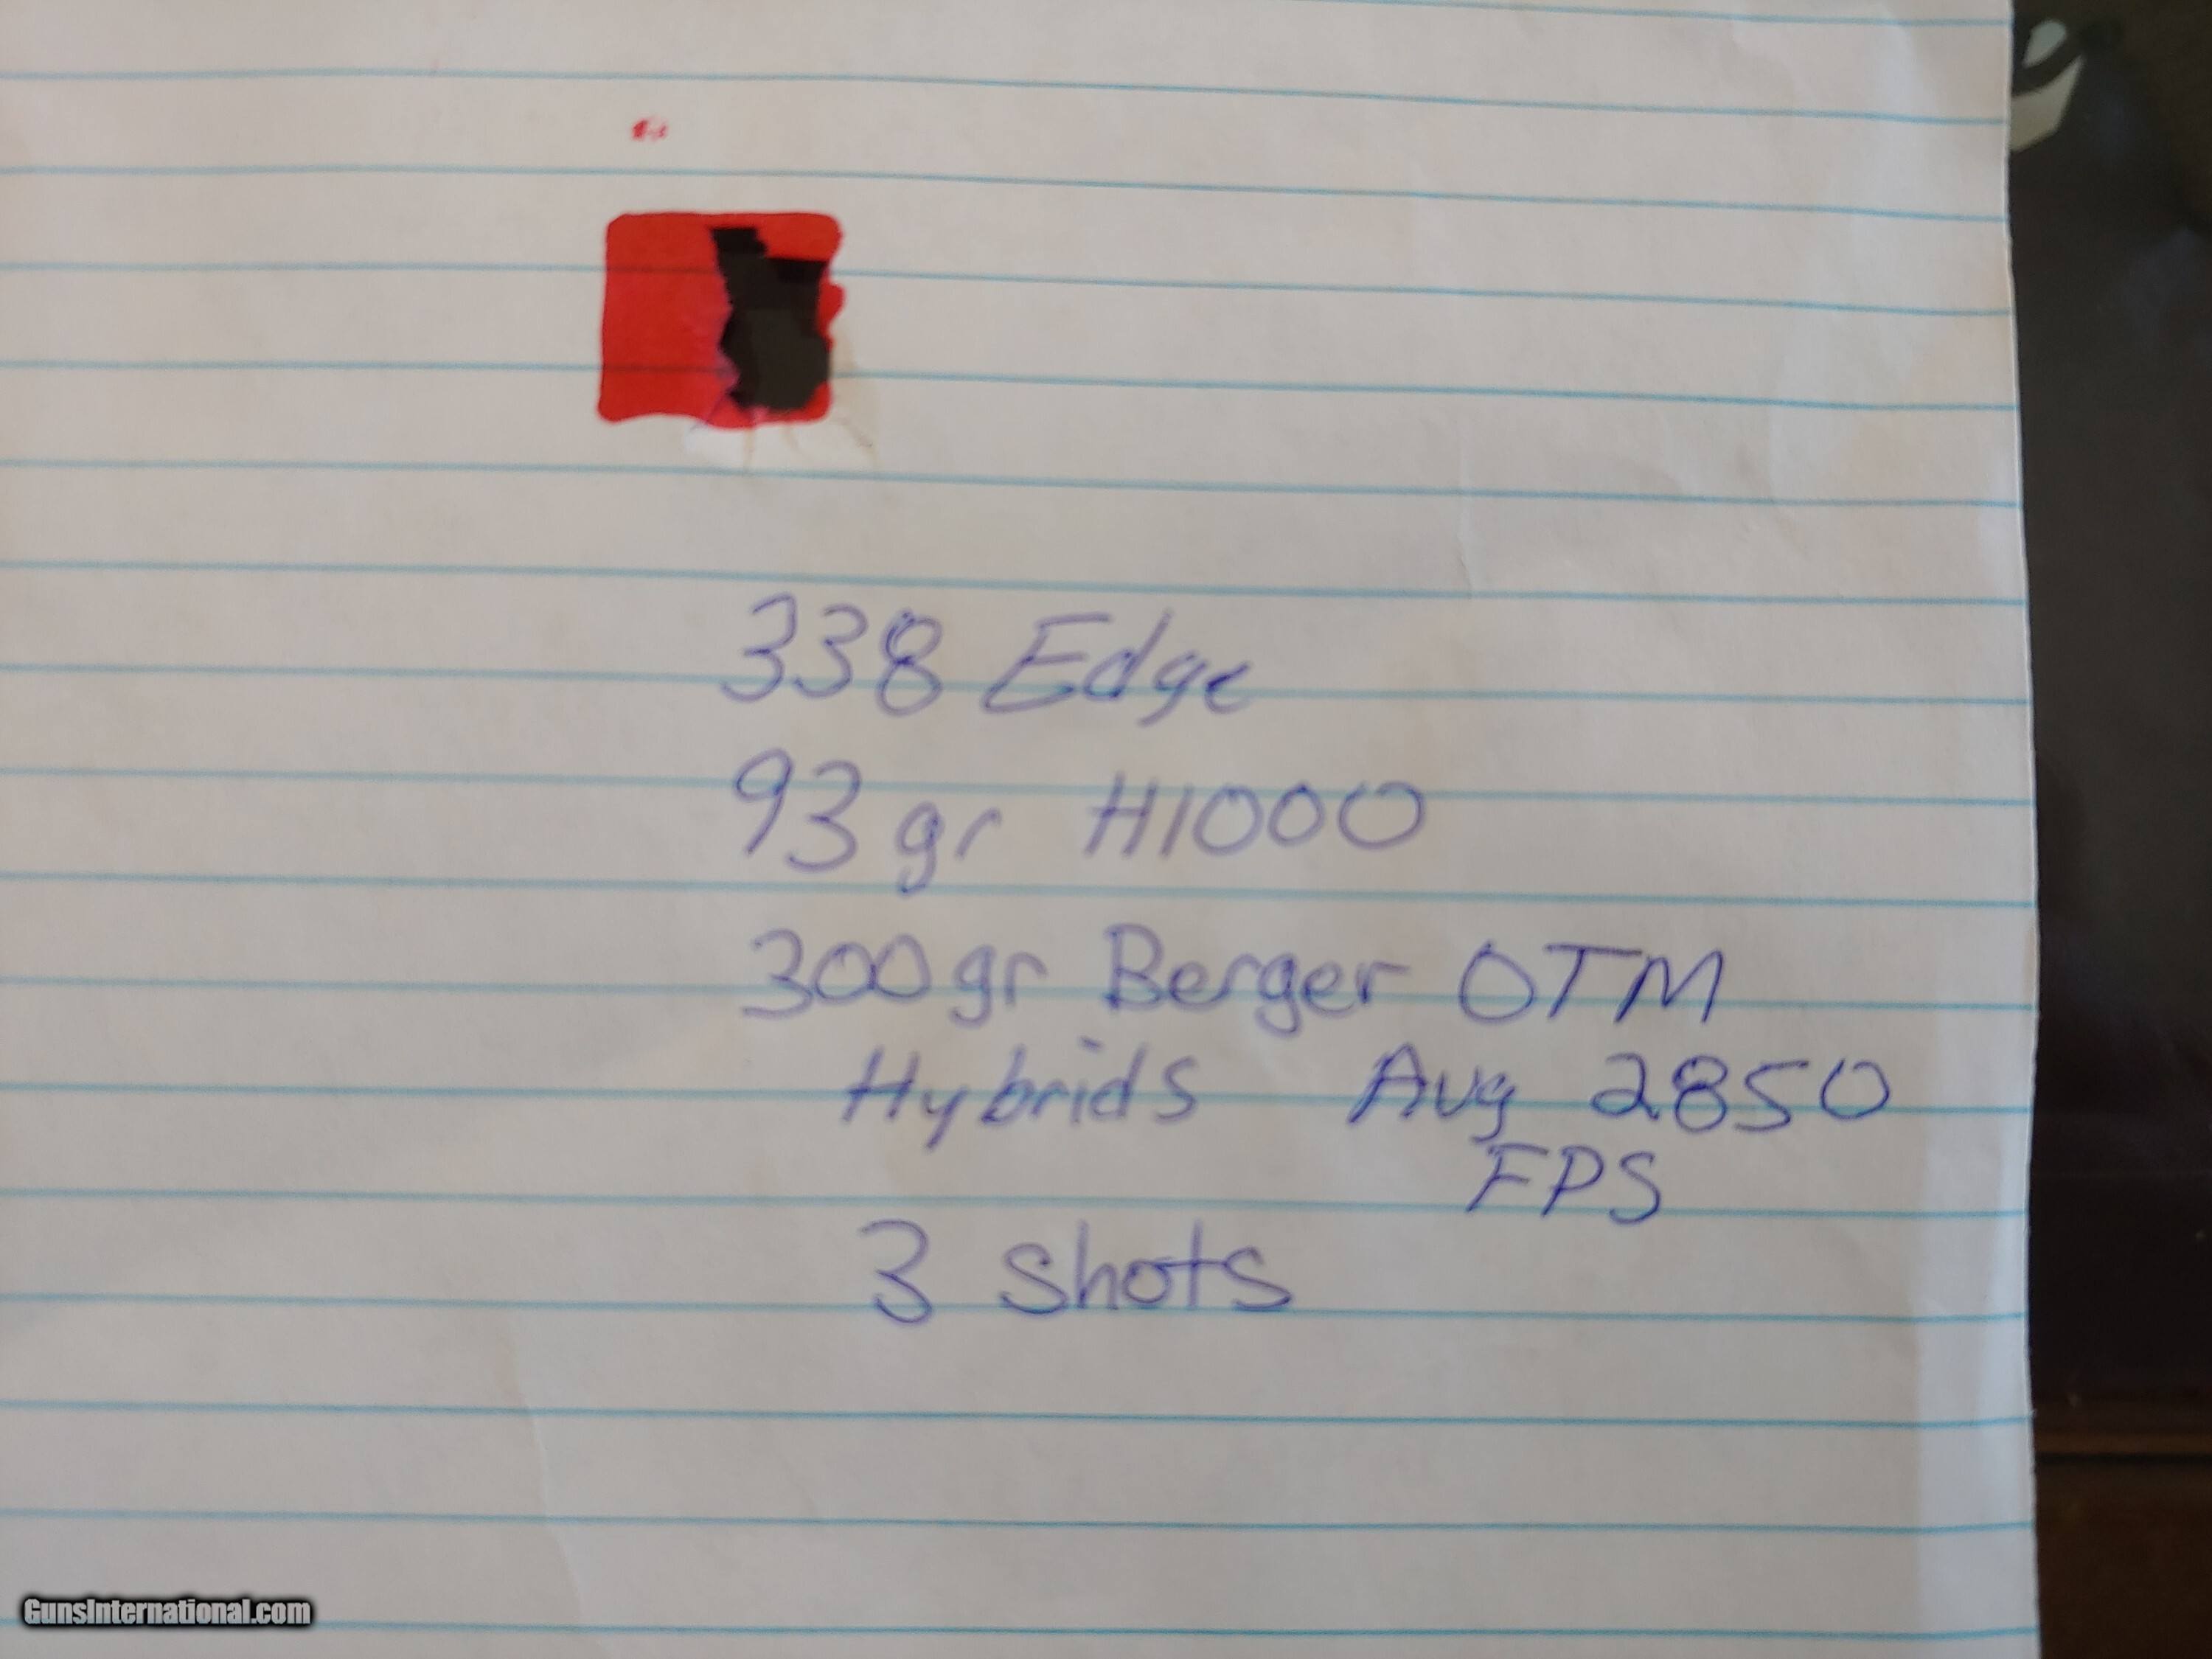 338 Edge
93 gr H1000
300 gr Berger OTM
Hybrids Avg 2850
FPS
3 shots
GunsInternational.com